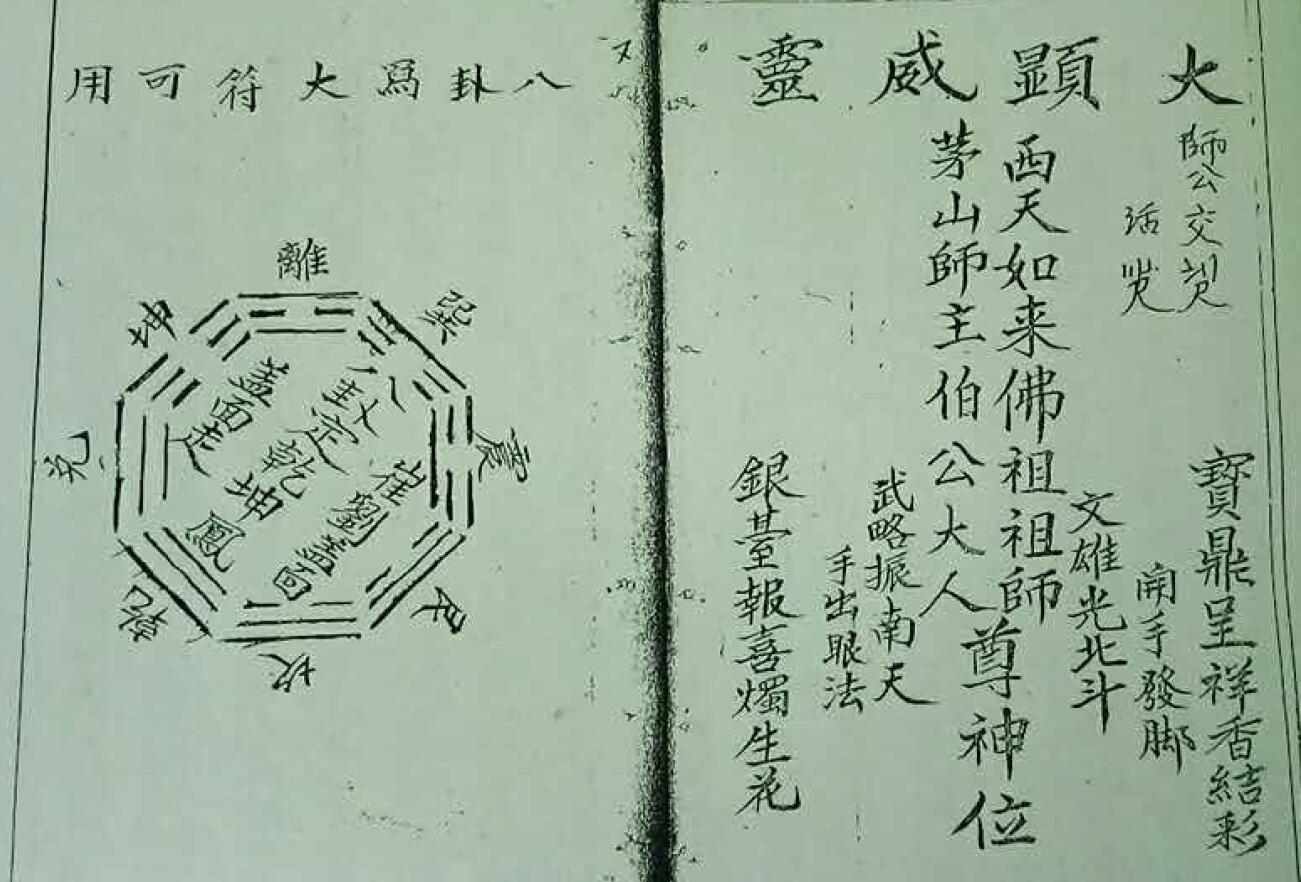 大顕威靈
師公交
活
寶鼎呈祥香結彩
開手發脚
文雄光北斗
西天如来佛祖祖師
茅山師主伯公大人
尊神位
武略振南天
手出眼法
銀臺報喜燭生花
八卦爲大符可用
離
巽
震
艮
坎
乾
兑
坤
八卦定乾坤
崔劉蓋面
蓋面走
鳳